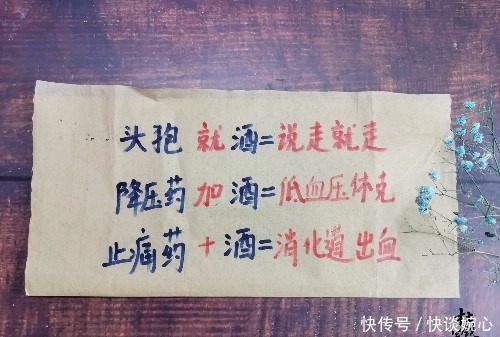 头孢就酒=说走就走
降压药加酒=低血压休克
止痛药+酒=消化道出血
快传号/快谈婉心